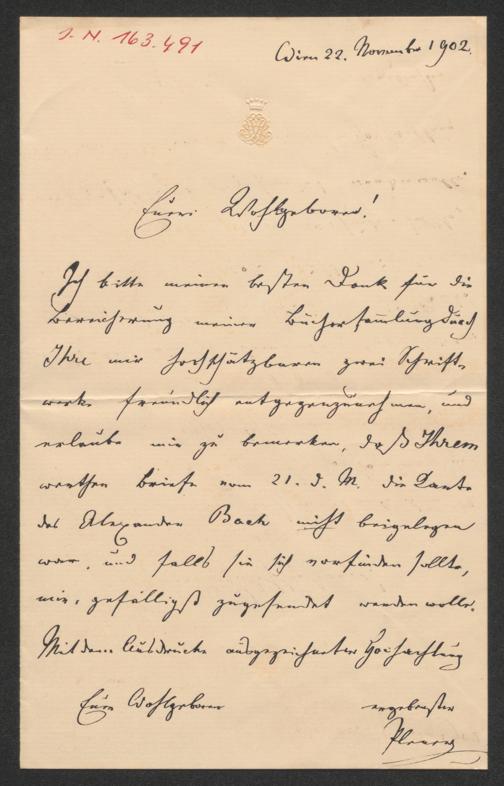 I. N. 163.491
Wien 22. November 1902.
Euer Wohlgeboren!
Ich bitte meinen besten Dank für die
Bereicherung meiner Büchersammlung durch
Ihre mir hochschätzbaren zwei Schrift-
werke freundlich entgegenzunehmen, und
erlaube mir zu bemerken, daß Ihrem
werthen Briefe vom 21. d. M. die Karte
des Alexander Bach nicht beigelegen
war, und falls sie sich vorfinden sollte,
mir, gefälligst zugesendet werden wolle.
Mit dem Ausdrucke ausgezeichneter Hochachtung
Euer Wohlgeboren
ergebenster
Plener